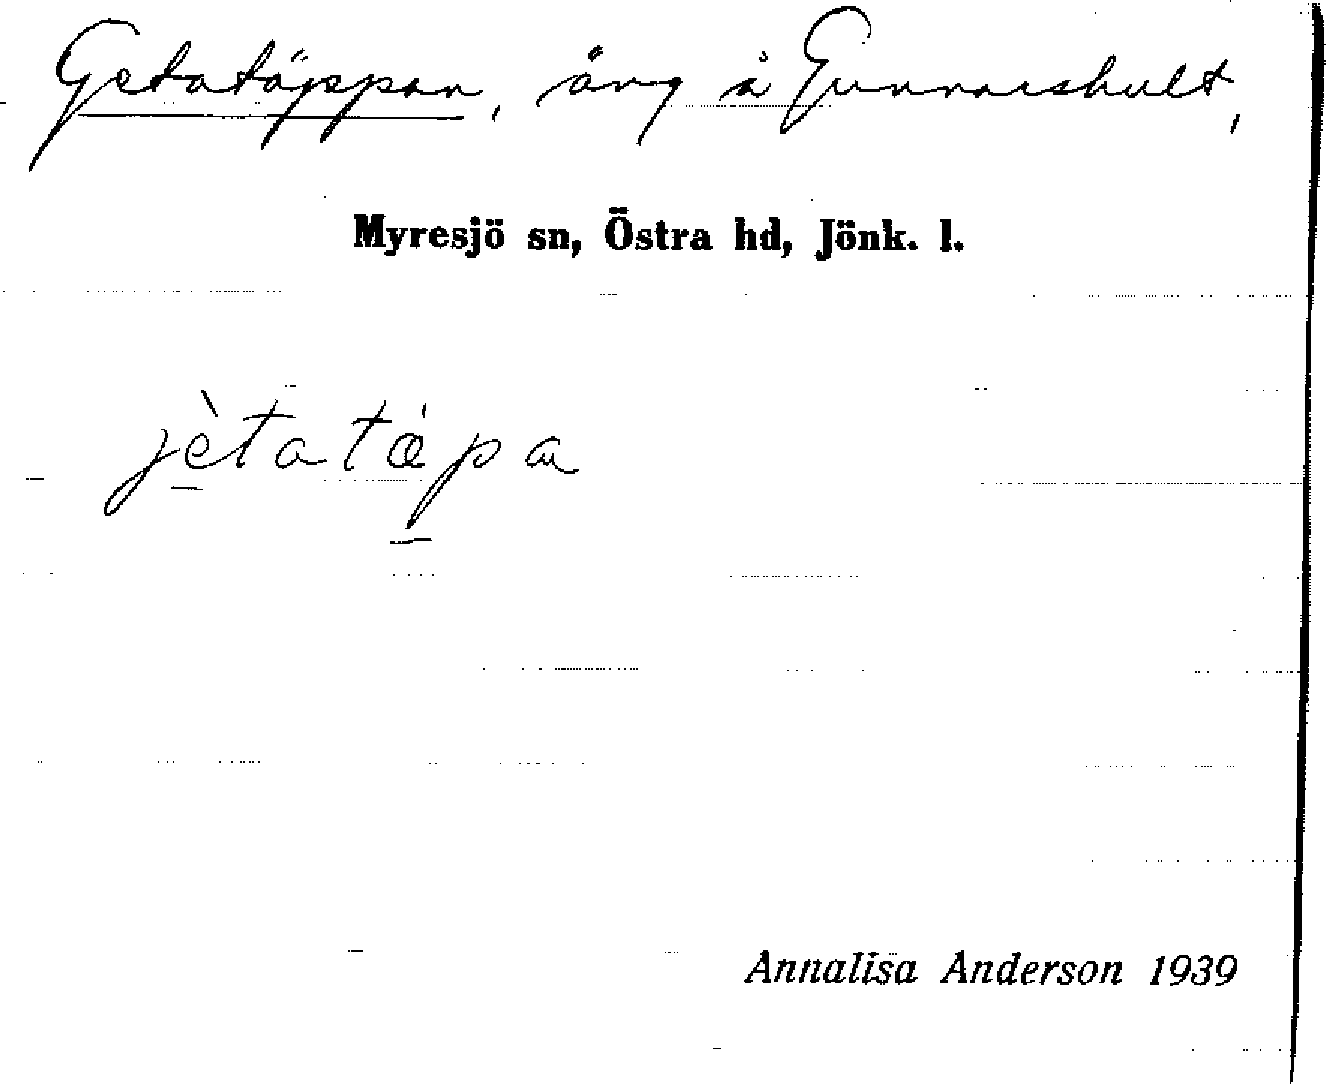 Getatäppan, äng å Gunnarshult,
Myresjö sn, Östra hd, Jönk. l.
jètatǽpa
Annalisa Anderson 1939